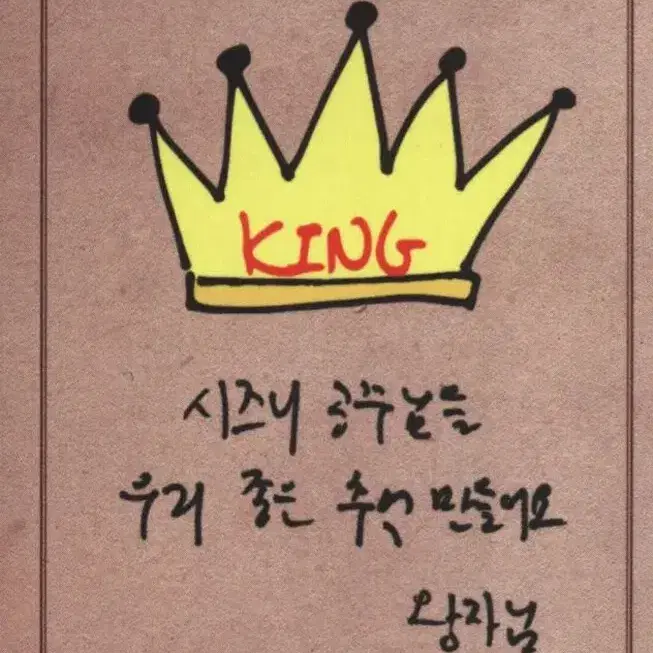 KING
시즈니 공주님들
우리 좋은 추억 만들어요
왕자님